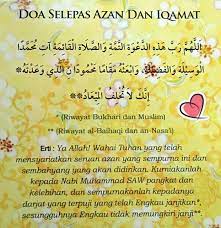 DOA SELEPAS AZAN DAN IQAMAT
اللَّهُمَّ رَبَّ هَذِهِ الدَّعْوَةِ التَّامَّةِ وَالصَّلَاةِ الْقَائِمَةِ آتِ مُحَمَّدًا
الْوَسِيلَةَ وَالْفَضِيلَةَ وَابْعَثْهُ مَقَامًا مَحْمُودًا الَّذِي وَعَدْتَهُ*
إِنَّكَ لَا تُخْلِفُ الْمِيعَادَ**
* (Riwayat Bukhari dan Muslim)
** (Riwayat al-Baihaqi dan an-Nasa'i)
Erti : Ya Allah! Wahai Tuhan yang telah
mensyariatkan seruan azan yang sempurna ini dan
sembahyang yang akan didirikan. Kurniakanlah
kepada Nabi Muhammad SAW pangkat dan
kelebihan, dan sempurnakanlah kepadanya
darjat yang terpuji yang telah Engkau janjikan*,
sesungguhnya Engkau tidak memungkiri janji**.